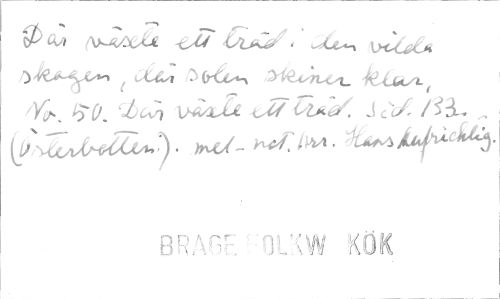 Där växte ett träd i den vilda
skogen, där solen skiner klar,
No. 50. Där växte ett träd. Sid. 133.
(Österbotten.). mel-not. Arr. Hans Aufrichtig.
BRAGE FOLKW KÖK